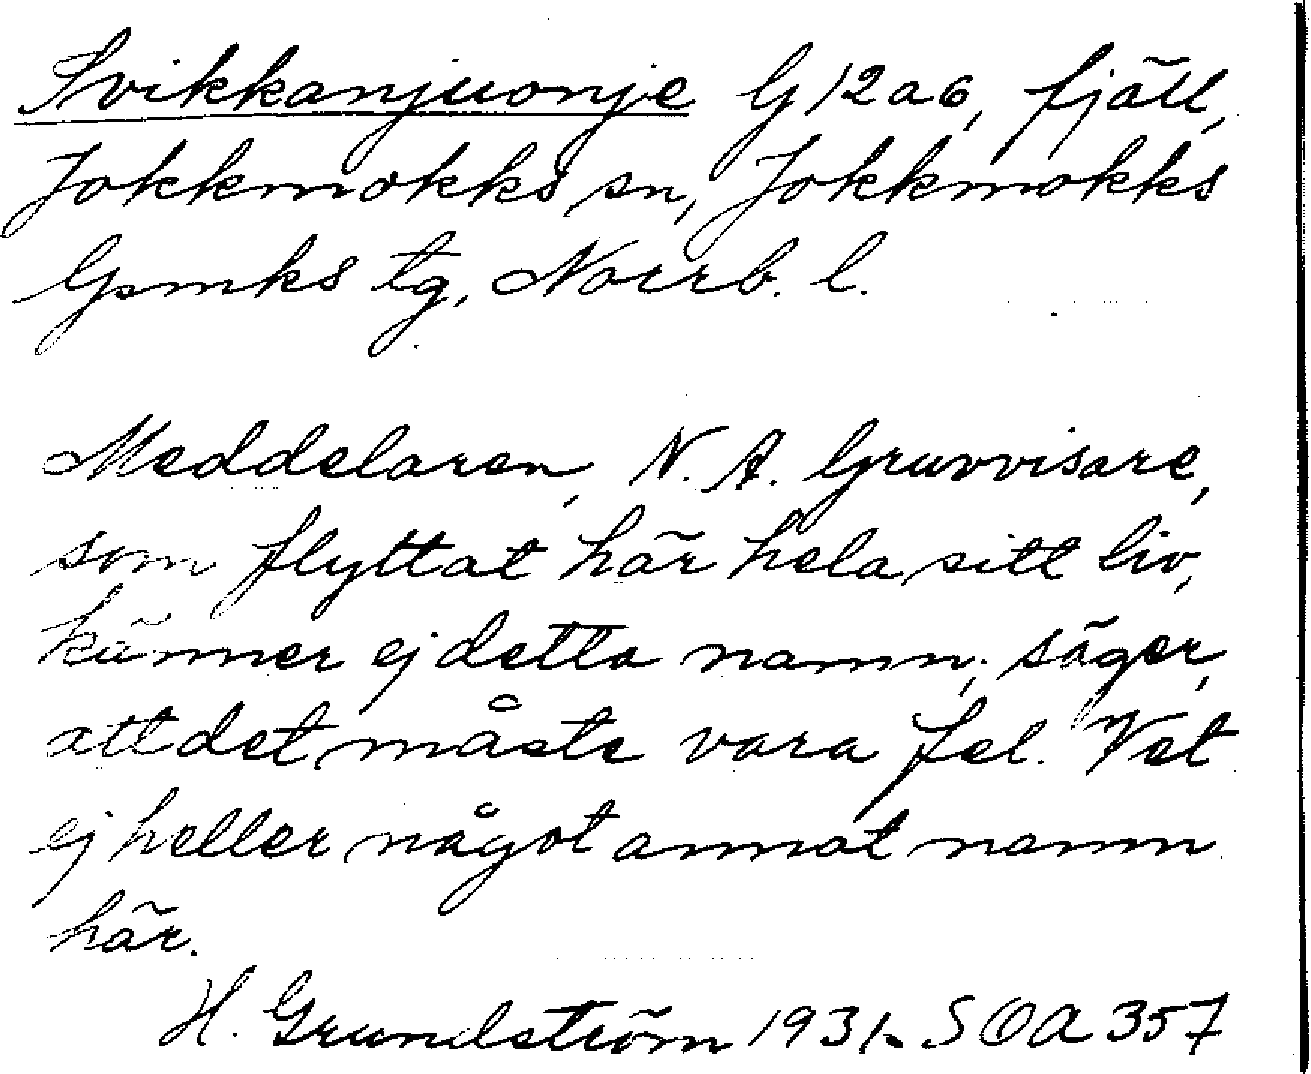 Svikkanjuonje G 12 a 6, fjäll,
Jokkmokks sn, Jokkmokks
lpmks tg, Norrb. l.
Meddelaren, N. A. Gruvvisare,
som flyttat här hela sitt liv,
känner ej detta namn, säger,
att det måste vara fel. Vet
ej heller något annat namn
här.
H. Grundström 1931. SOA 357